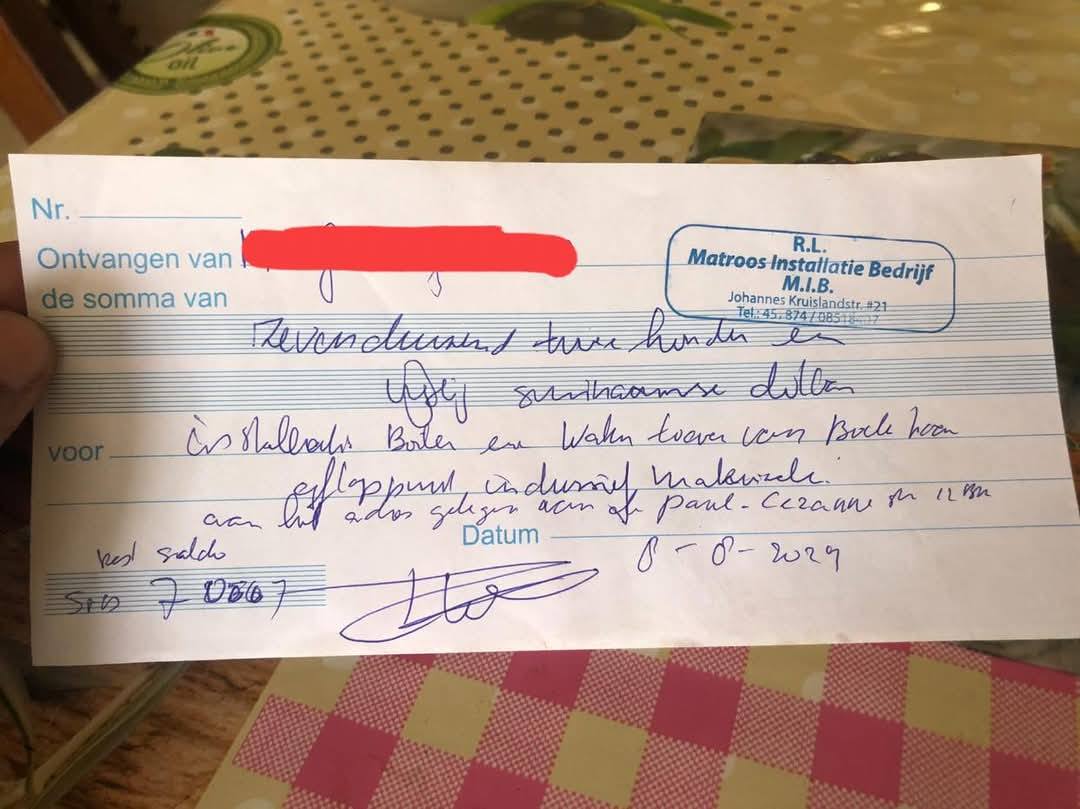 Olive
oil
Nr.
Ontvangen van
R.L.
Matroos Installatie Bedrijf
M.I.B.
Johannes Kruislandstr. #21
Tel.: 45, 874 / 08518
de somma van
Zevenduizend twee honder en
surinaamse dollar
voor
installatie Boiler en Water toever van
inclusief materiaal.
aan het adres gelegen aan de Paul-Cezanne str 12 BN
Datum 8-8-2024
rest saldo
SRD 7